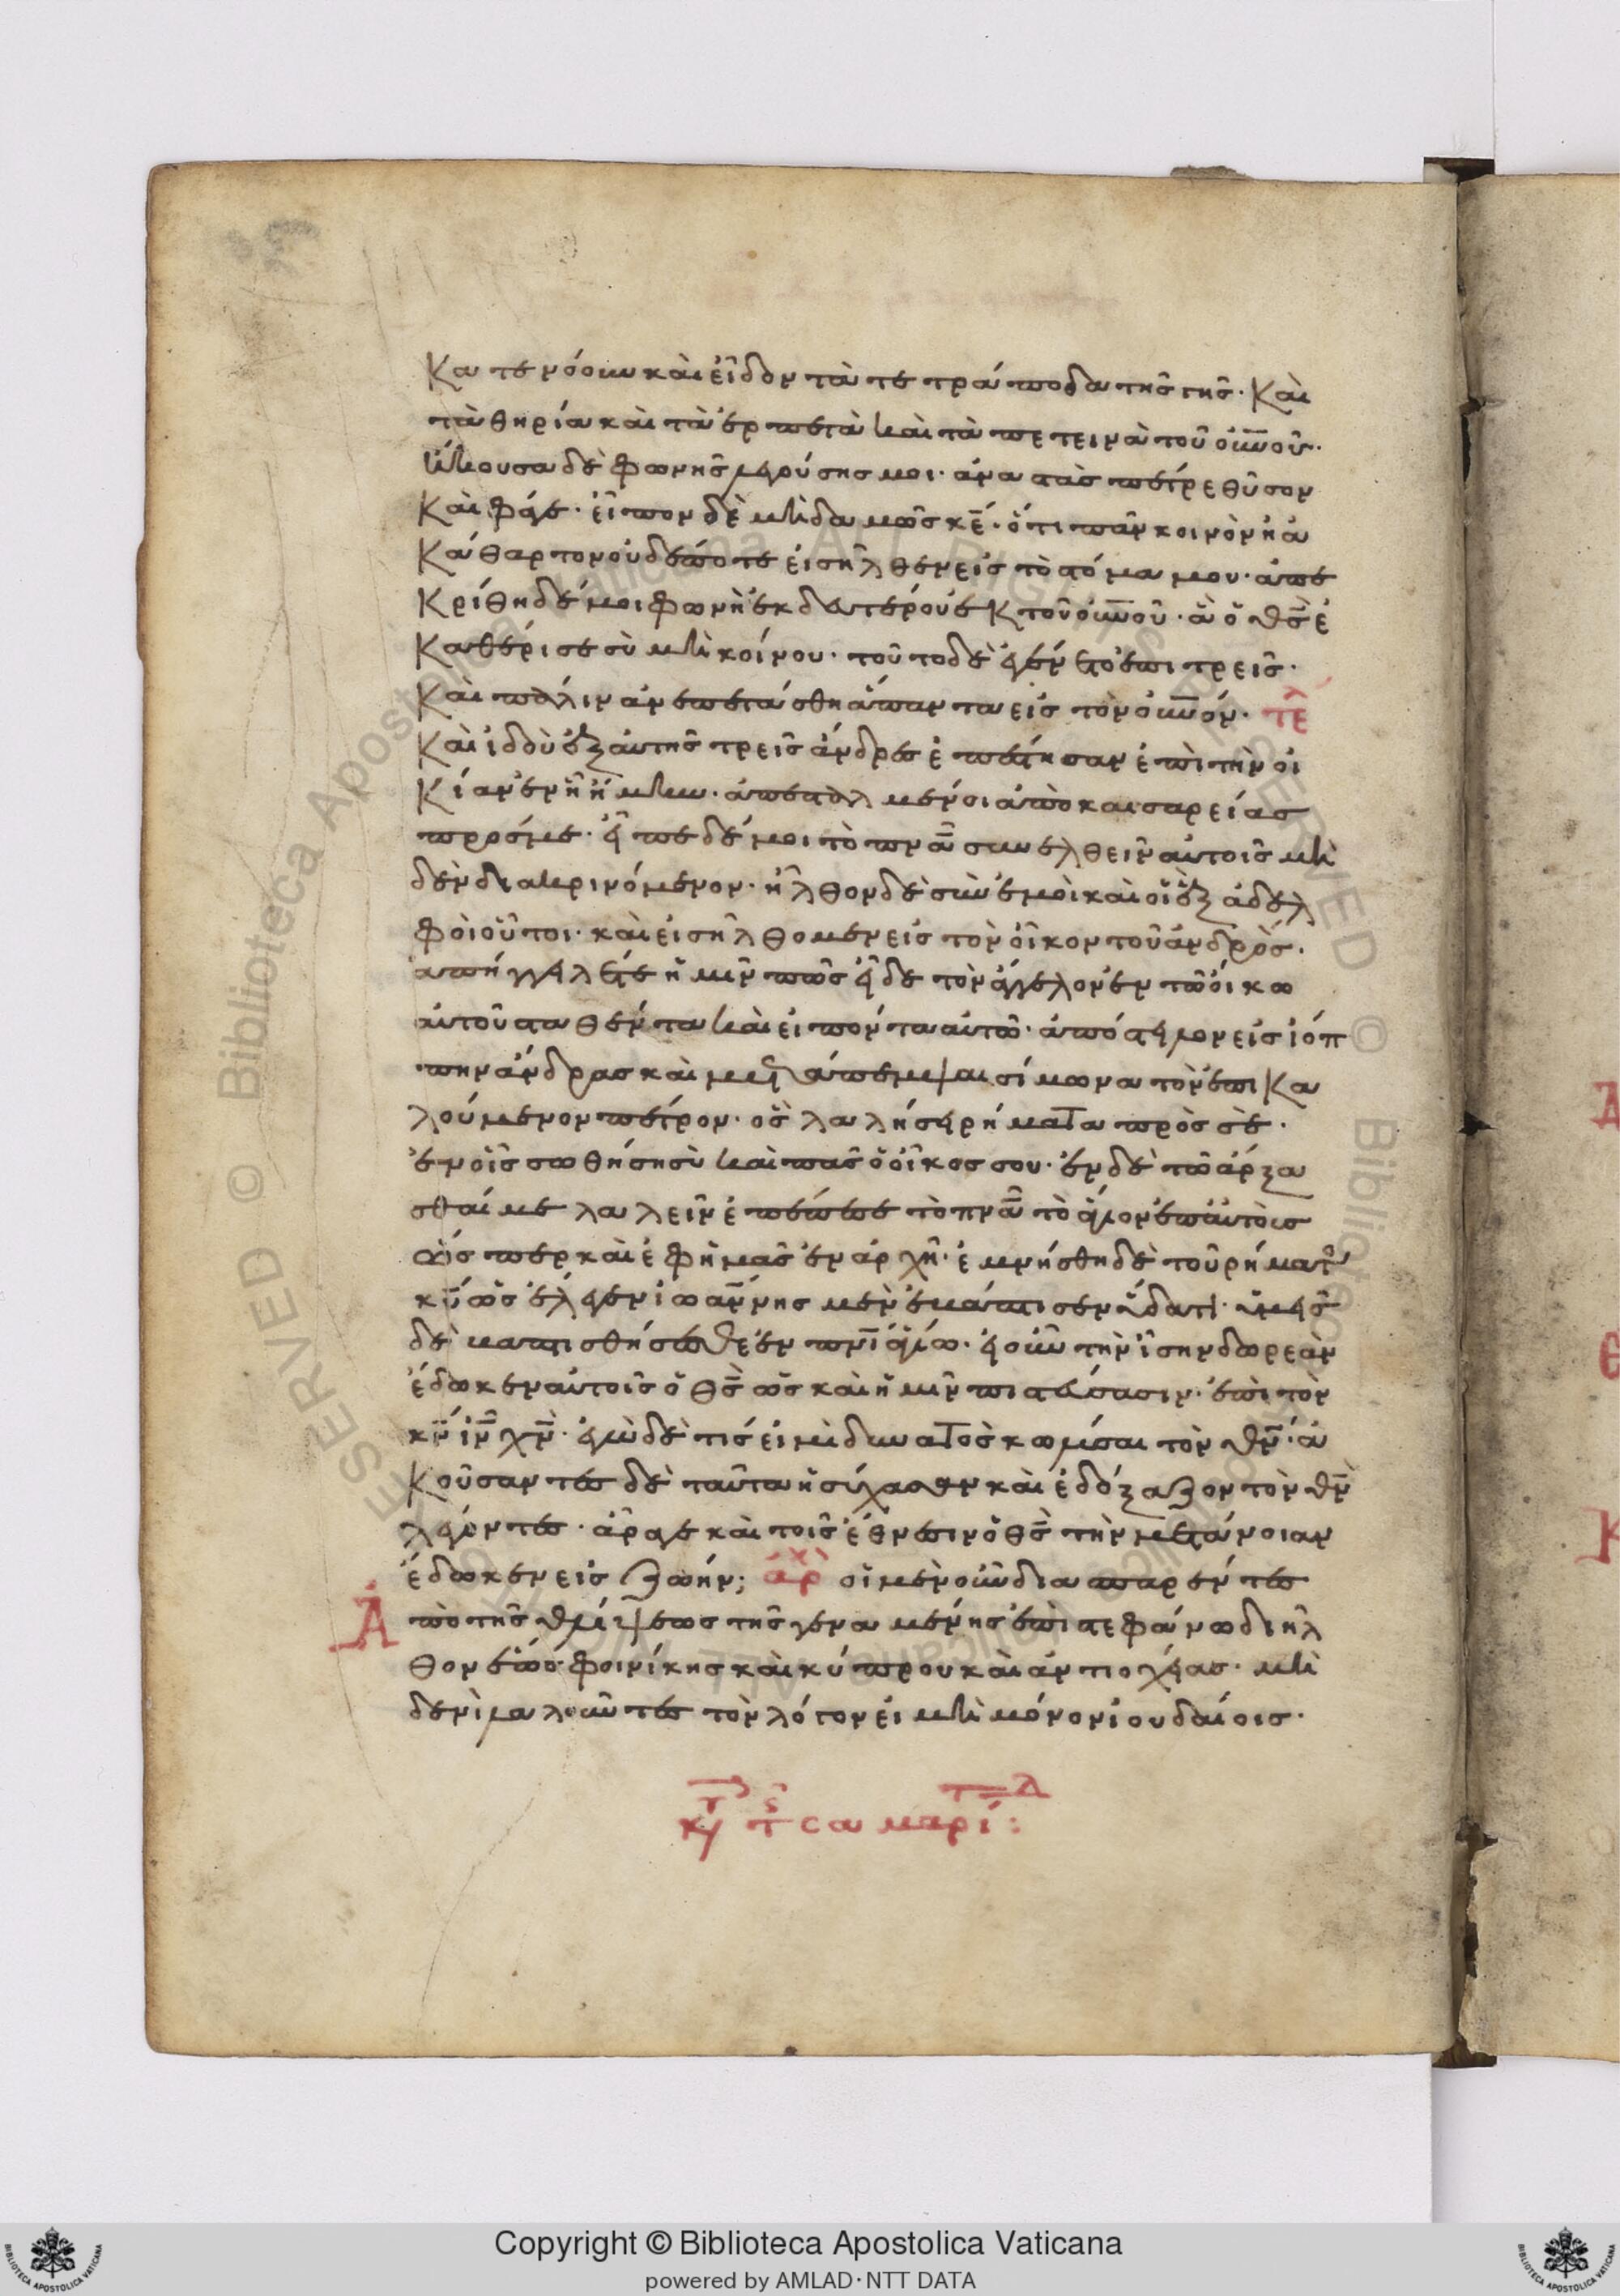 Κατενόουν καὶ εἶδον τὰ τετράποδα τῆς γῆς· Καὶ
τὰ θηρία καὶ τὰ ἑρπετὰ καὶ τὰ πετεινὰ τοῦ οὐνοῦ·
ἤκουσα δὲ φωνῆς λεγούσης μοι· ἀναστὰς πέτρε θῦσον
Καὶ φάγε· εἶπον δὲ μὴδαμῶς κε· ὅτι πᾶν κοινὸν ἢ ἀ
Κάθαρτον οὐδέποτε εἰσῆλθεν εἰς τὸ στόμα μου· ἀπε
Κρίθη δέ μοι φωνὴ ἐκ δευτέρου ἐκ τοῦ οὐνοῦ· ἃ ὁ θς ἐ
Καθέρισε σὺ μὴ κοίνου· τοῦτο δὲ ἐγένετο ἐπι τρεῖς·
Καὶ πάλιν ἀνεσπάσθη ἅπαντα εἰς τὸν οὐνόν· τε
Καὶ ἰδοὺ ἐξ αὐτῆς τρεῖς ἄνδρες ἐπέστησαν ἐπὶ τὴν οἰ
Κίαν ἐν ἧ ἤμην· ἀπεσταλμένοι ἀπὸ καισαρείας
πρός με· εἶπε δέ μοι τὸ πνα συνελθεῖν αὐτοῖς μὴ
δὲν διακρινόμενον· ἦλθον δὲ σὺν ἐμοὶ καὶ οἱ ἓξ ἀδελ
φοὶ οὗτοι· καὶ εἰσήλθομεν εἰς τὸν οἶκον τοῦ ἀνδρός·
ἀπήγγειλέ τε ἡμῖν πῶς εἶδε τὸν ἄγγελον ἐν τῶ οἴκω
αὐτοῦ σταθέντα καὶ εἰπόντα αὐτῶ· ἀπόστειλον εἰς ἰόπ
πην ἄνδρας καὶ μετάπεμψαι σίμωνα τὸν ἐπικα
λούμενον πέτρον· ὃς λαλήσει ρήματα πρὸς σέ·
ἐν οἷς σωθήση σὺ καὶ πᾶς ὁ οἶκος σου· ἐν δὲ τῶ ἄρξα
σθαί με λαλεῖν ἐπέπεσε τὸ πνα τὸ ἅγιον ἐπ αὐτοὶς
ὥς περ καὶ ἐφ ἡμᾶς ἐν ἀρχῆ· ἐμνήσθη δὲ τοῦ ρήματ
κυ ὡς ἔλεγεν ἰωάννης μὲν ἐβάπτισεν ὕδατι· ὑμεῖς
δὲ βαπτισθήσεσθε ἐν πνι ἁγίω· εἰ οὖν τὴν ἴσην δωρεὰν
ἔδωκεν αὐτοῖς ὁ θς ὡς καὶ ἡμῖν πιστεύσασιν· ἐπὶ τὸν
κν ιν χν· ἐγὼ δὲ τίς εἰμὶ δυνατὸς κωλύσαι τὸν θν· ἀ
Κούσαντες δὲ ταῦτα ἡσύχασαν καὶ ἐδόξαζον τὸν θν
λέγοντες· ἆραγε καὶ τοῖς ἔθνεσιν ὁ θς τὴν μετάνοιαν
ἔδωκεν εἰς ζωήν; ἀρχ οἱ μὲν οὖν διασπαρέντες
Ἀπὸ τῆς θλίψεως τῆς γεναμένης ἐπὶ στεφάνω διῆλ
θον ἕως φοινίκης καὶ κύπρου καὶ ἀντιοχείας· μὴ
δενὶ λαλοῦντες τὸν λόγον εἰ μὴ μόνον ἰουδαίοις·